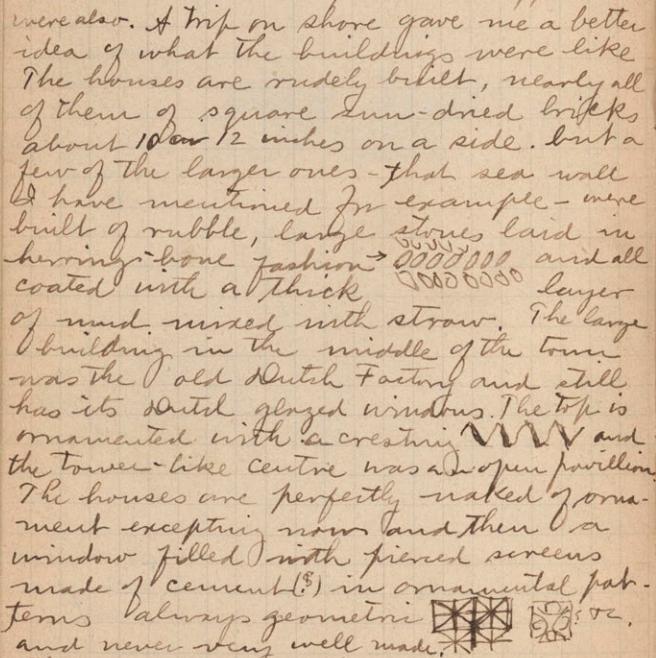 were also. A trip on shore gave me a better
idea of what the buildings were like
The houses are rudely built, nearly all
of them of square sun-dried bricks
about 10 or 12 inches on a side. but a
few of the larger ones - that sea wall
I have mentioned for example - were
built of rubble, large stones laid in
herring-bone fashion → and all
coated with a thick layer
of mud mixed with straw. The large
building in the middle of the town
was the old Dutch Factory and still
has its Dutch glazed windows. The top is
ornamented with a cresting and
the tower-like centre was an open pavillion.
The houses are perfectly naked of orna-
ment excepting now and then a
window filled with pierced screens
made of cement (?) in ornamental pat-
terns always geometric &c.
and never very well made.